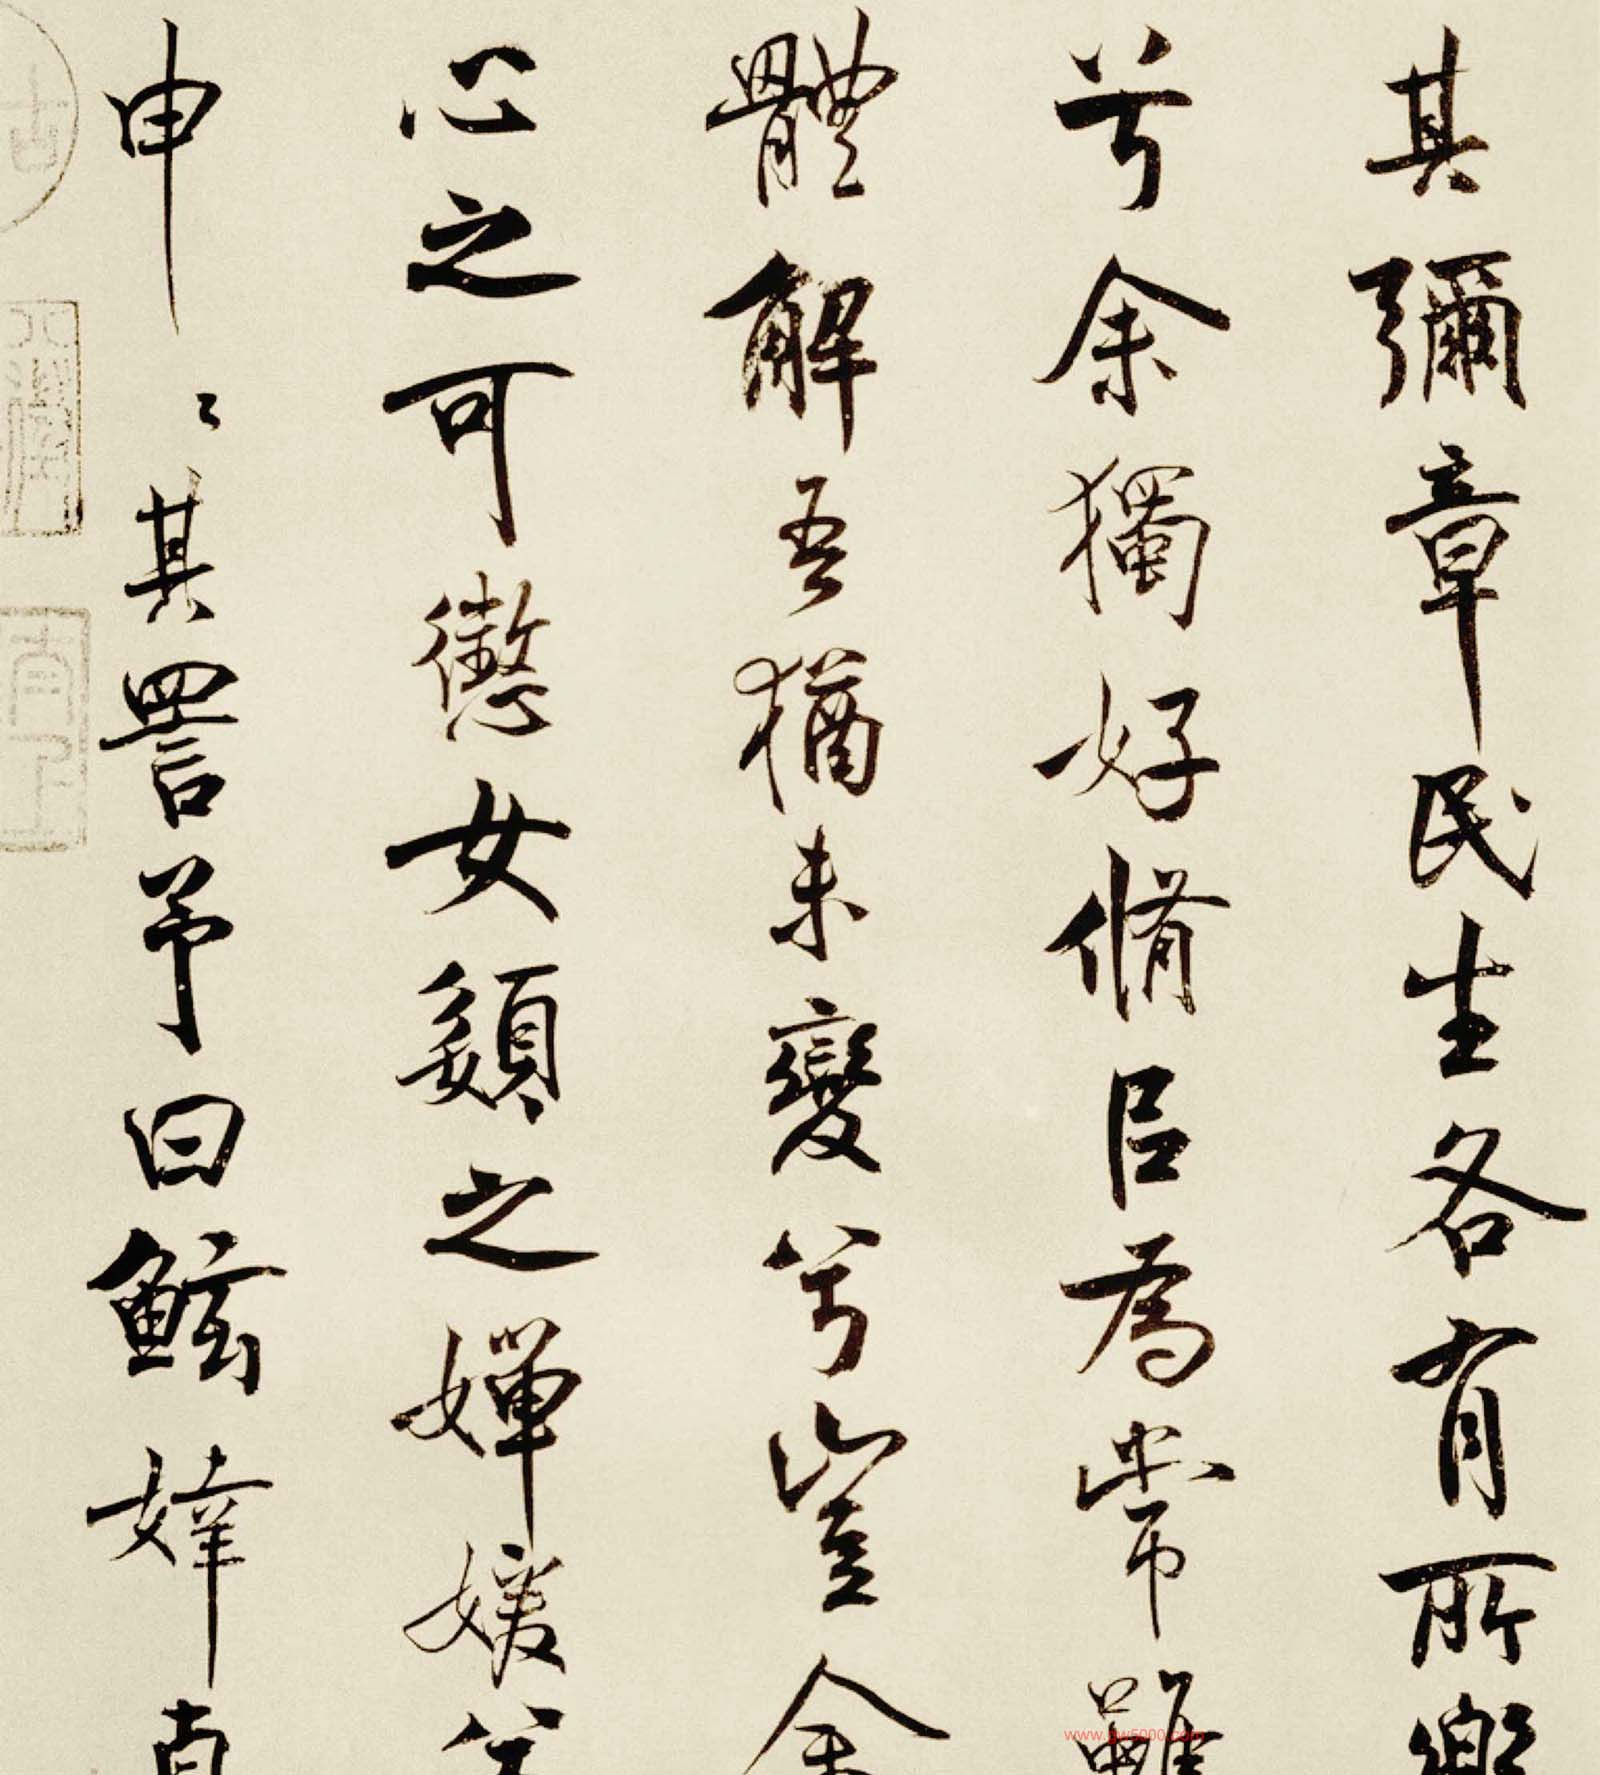 其彌章民生各有所樂
兮余獨好脩㠯為常雖
體解吾猶未變兮豈余
心之可懲女顡之嬋媛兮
申〻其詈予曰鮌婞直
www.yw5000.com